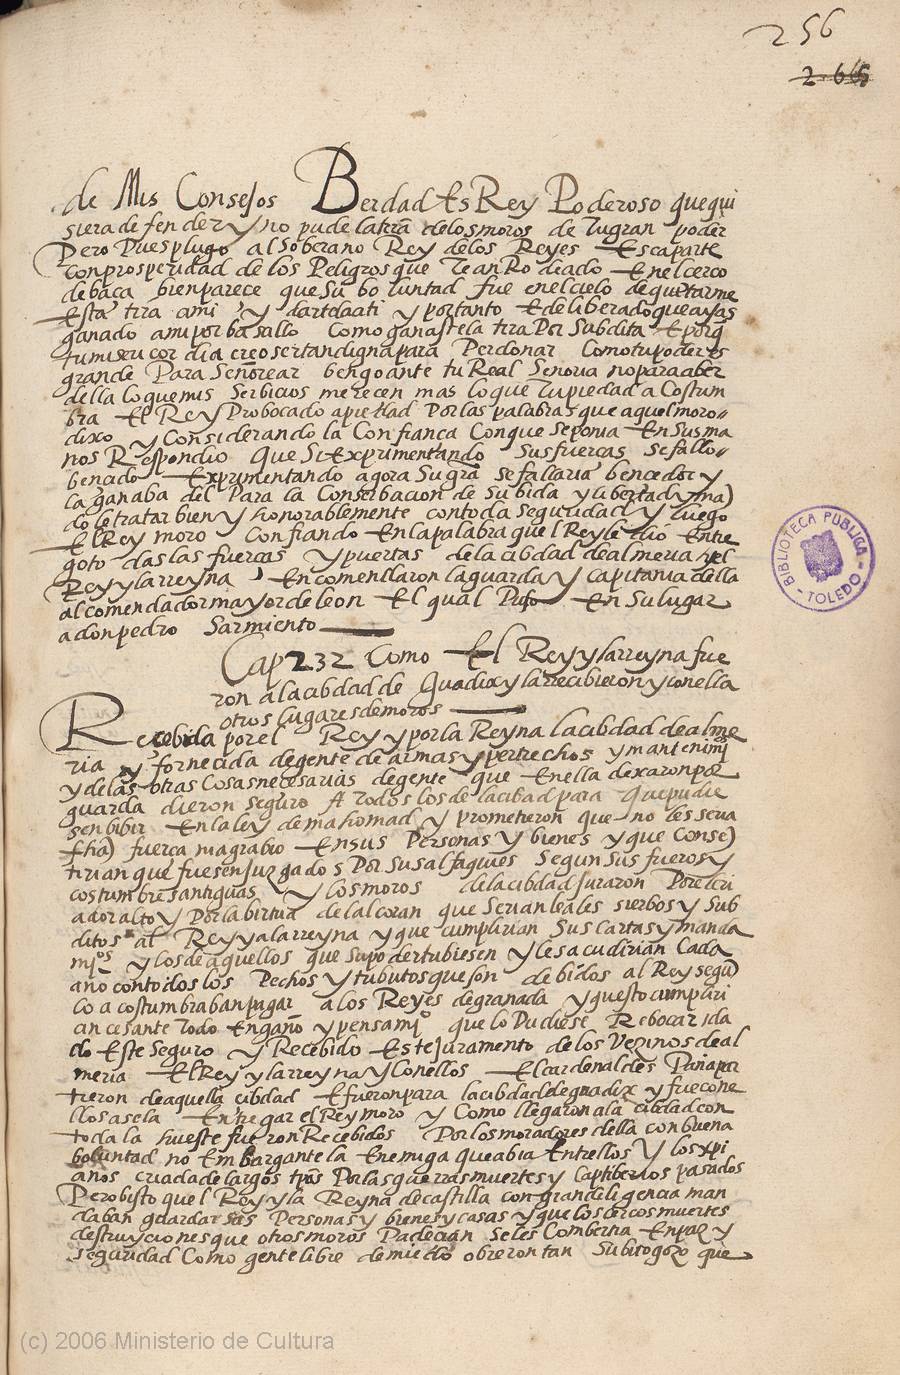 256
266
de Mis Consejos Berdad Es Rey Poderoso que qui
siera defender y no pude la trrā de los moros de Tu gran poder
Pero Pues plugo al soberano Rey de los Reyes Escaparte
con prosperidad de los Peligros que Te an Rodeado En el cerco
de baça bien parece que Su boluntad fue en el cielo de quitarme
Esta trra a mi y dartela a ti y por tanto E deliberado que ayas
ganado a mi por basallo como ganaste la trra Por Subdita E porq̄
tu miseicordia creo ser tan digna para Perdonar como tu poder es
grande Para Señorear bengo ante tu Real Senoria no para aber
della lo que mis Serbicios merecen mas lo que Tu piedad a Costum
bra El Rey Probocado a piedad Por las palabras que aquel moro
dixo y Considerando la Confiança Con que se ponia En sus ma
nos Respondio que Si Exprimentando Sus fuercas se fallo
bencido Exprimentando agora Su grā se fallaria bencedor y
la ganaba del Para la Conserbacion de Su bida y libertad y ma)
do le tratar bien y honorablemente con toda Seguridad y luego
El Rey moro Confiando En la palabra que l Rey le dio Entre
goto das las fuercas y puertas de la cibdad de almeria y el
Rey y la rreyna Encomendaron la guarda y capitania della
al comendador mayor de leon El qual Puso En Su lugar
a don pedro Sarmiento
Cap 232 Como El Rey y la rreyna fue
ron a la cibdad de Guadix y la rrecibieron y con ella
otros lugares de moros
Recebida por el Rey y por la Reyna la cibdad de alme
ria y fornecida de gente de armas y pertrechos y mantenimj
y de las otras Cosas necesarias de gente que En ella dexaron por
guarda dieron seguro A Todos los de la cibdad para Que pudie
sen bibir En la ley de mahomad y prometieron que no les seria
ftha) fuerca ni agrabio En sus Personas y bienes y que Conse)
tirian que fuesen juzgados Por Sus alfaquies Segun Sus fueros y
costumbres antiguas y los moros de la cibdad juraron Por el cri
ador alto y Por la birtud del alcoran que Serian leales sierbos y Sub
ditos al Rey y a la rreyna y que cumplirian Sus cartas y manda
mjos y los de aquellos que Su poder tubiesen y les acudirian Cada
año con todos los Pechos y tributos que son debidos al Rey segū
lo acostumbraban pagar a los Reyes de granada y questo cumpliri
an cesante Todo Engaño y pensamjo que lo Pudiese Rebocar i da
do Este Seguro y Recebido Este juramento de los Vezinos de al
meria El Rey y la rreyna y Con ellos El cardenal de Espania par
tieron de aquella cibdad E fueron para la cibdad de guadix y fue con e
llos a se la Entregar el Rey moro y Como llegaron a la cibdad con
toda la hueste fueron Recebidos Por los moradores della con buena
boluntad no Embargante la Enemiga que abia Entrellos y los xpi
anos criada de largos tpos Por las guerras muertes y captiberios pasados
Pero bisto que l Rey y la Reyna de castilla con gran deligencia man
daban guardar sus Personas y bienes y casas y que los cercos muertes
destruyciones que otros moros Padecian Se les Combertia En paz y
seguridad Como gente libre de miedo obieron tan Subito gozo que
BIBLIOTECA PUBLICA
TOLEDO
(c) 2006 Ministerio de Cultura